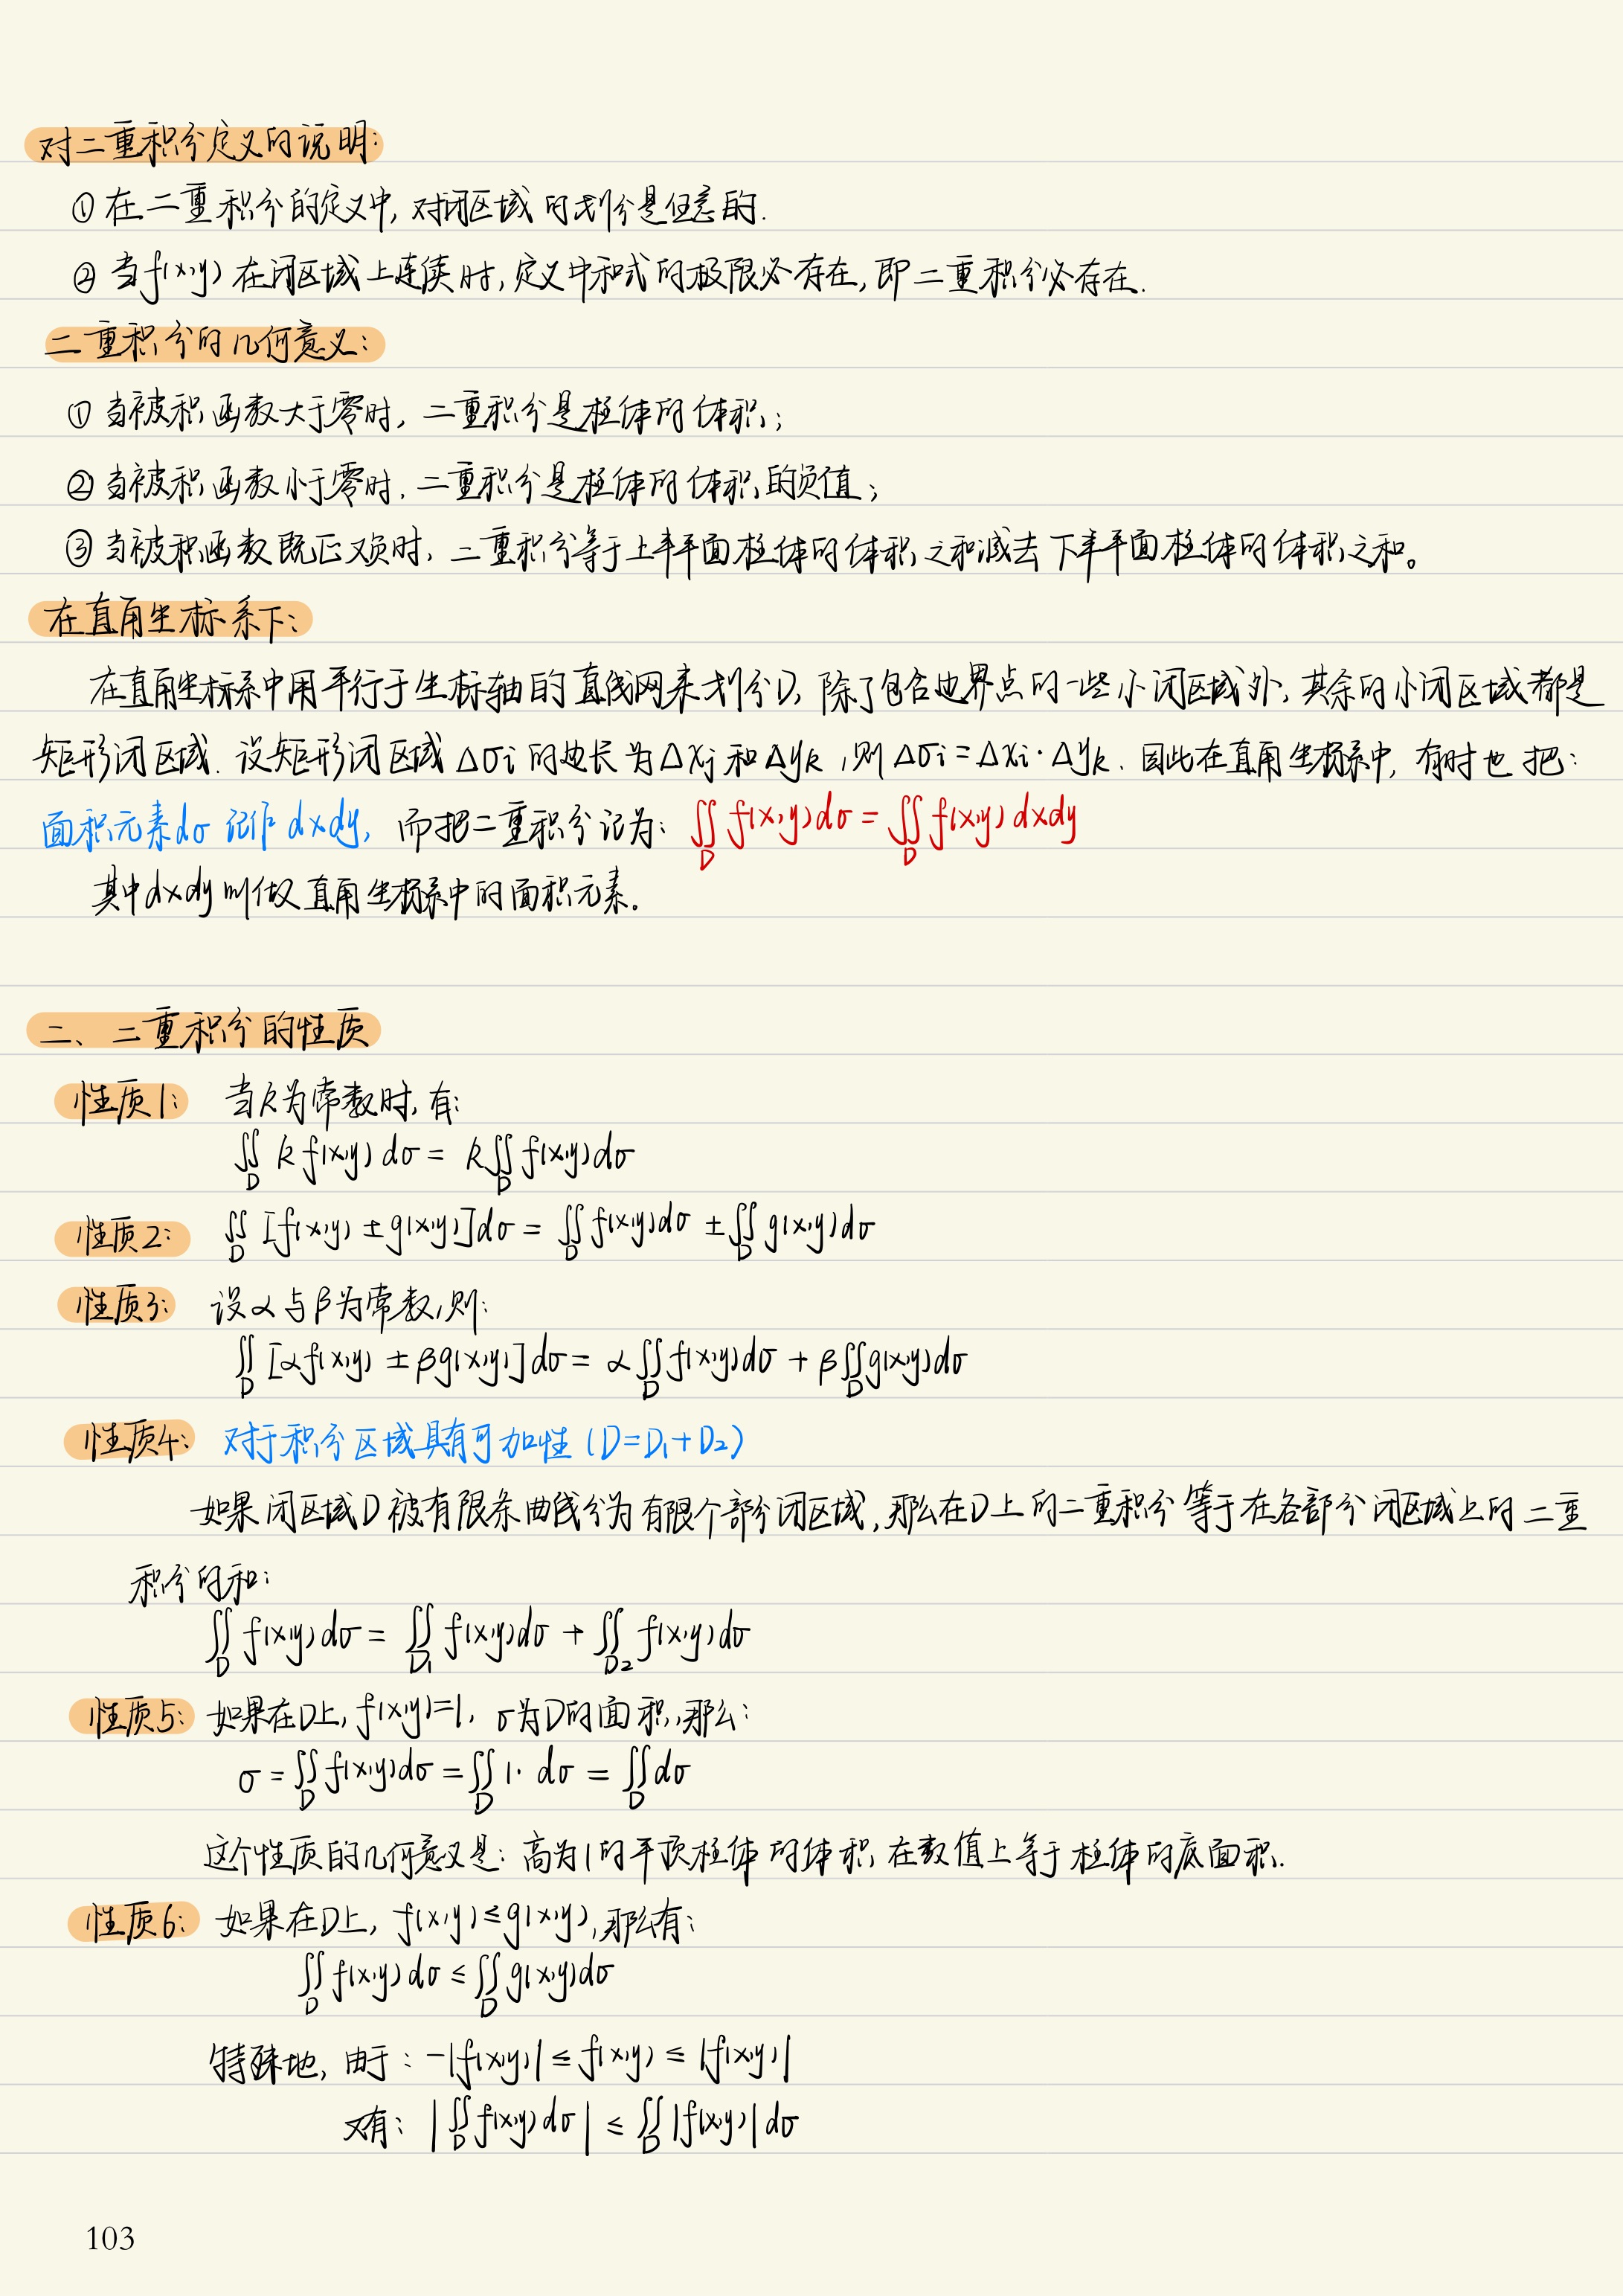 对二重积分定义的说明:
① 在二重积分的定义中, 对闭区域的划分是任意的.
② 当f(x,y)在闭区域上连续时, 定义中和式的极限必存在, 即二重积分必存在.
二重积分的几何意义:
① 当被积函数大于零时, 二重积分是柱体的体积;
② 当被积函数小于零时, 二重积分是柱体的体积的负值;
③ 当被积函数既正又负时, 二重积分等于上半平面柱体的体积之和减去下半平面柱体的体积之和。
在直角坐标系下:
在直角坐标系中用平行于坐标轴的直线网来划分D, 除了包含边界点的一些小闭区域外, 其余的小闭区域都是
矩形闭区域. 设矩形闭区域Δσi的边长为Δxj和Δyk, 则Δσi=Δxi·Δyk. 因此在直角坐标系中, 有时也把:
面积元素dσ记作dxdy, 而把二重积分记为: ∬_D f(x,y)dσ = ∬_D f(x,y)dxdy
其中dxdy叫做直角坐标系中的面积元素。
二、二重积分的性质
性质1: 当k为常数时, 有:
∬_D k f(x,y)dσ = k∬_D f(x,y)dσ
性质2: ∬_D [f(x,y)±g(x,y)]dσ = ∬_D f(x,y)dσ ± ∬_D g(x,y)dσ
性质3: 设α与β为常数, 则:
∬_D [αf(x,y)±βg(x,y)]dσ = α∬_D f(x,y)dσ + β∬_D g(x,y)dσ
性质4: 对于积分区域具有可加性 (D=D₁+D₂)
如果闭区域D被有限条曲线分为有限个部分闭区域, 那么在D上的二重积分等于在各部分闭区域上的二重
积分的和:
∬_D f(x,y)dσ = ∬_D₁ f(x,y)dσ + ∬_D₂ f(x,y)dσ
性质5: 如果在D上, f(x,y)=1, σ为D的面积, 那么:
σ = ∬_D f(x,y)dσ = ∬_D 1·dσ = ∬_D dσ
这个性质的几何意义是: 高为1的平顶柱体的体积在数值上等于柱体的底面积.
性质6: 如果在D上, f(x,y)≤g(x,y), 那么有:
∬_D f(x,y)dσ ≤ ∬_D g(x,y)dσ
特殊地, 由于: -|f(x,y)| ≤ f(x,y) ≤ |f(x,y)|
又有: |∬_D f(x,y)dσ| ≤ ∬_D |f(x,y)|dσ
103